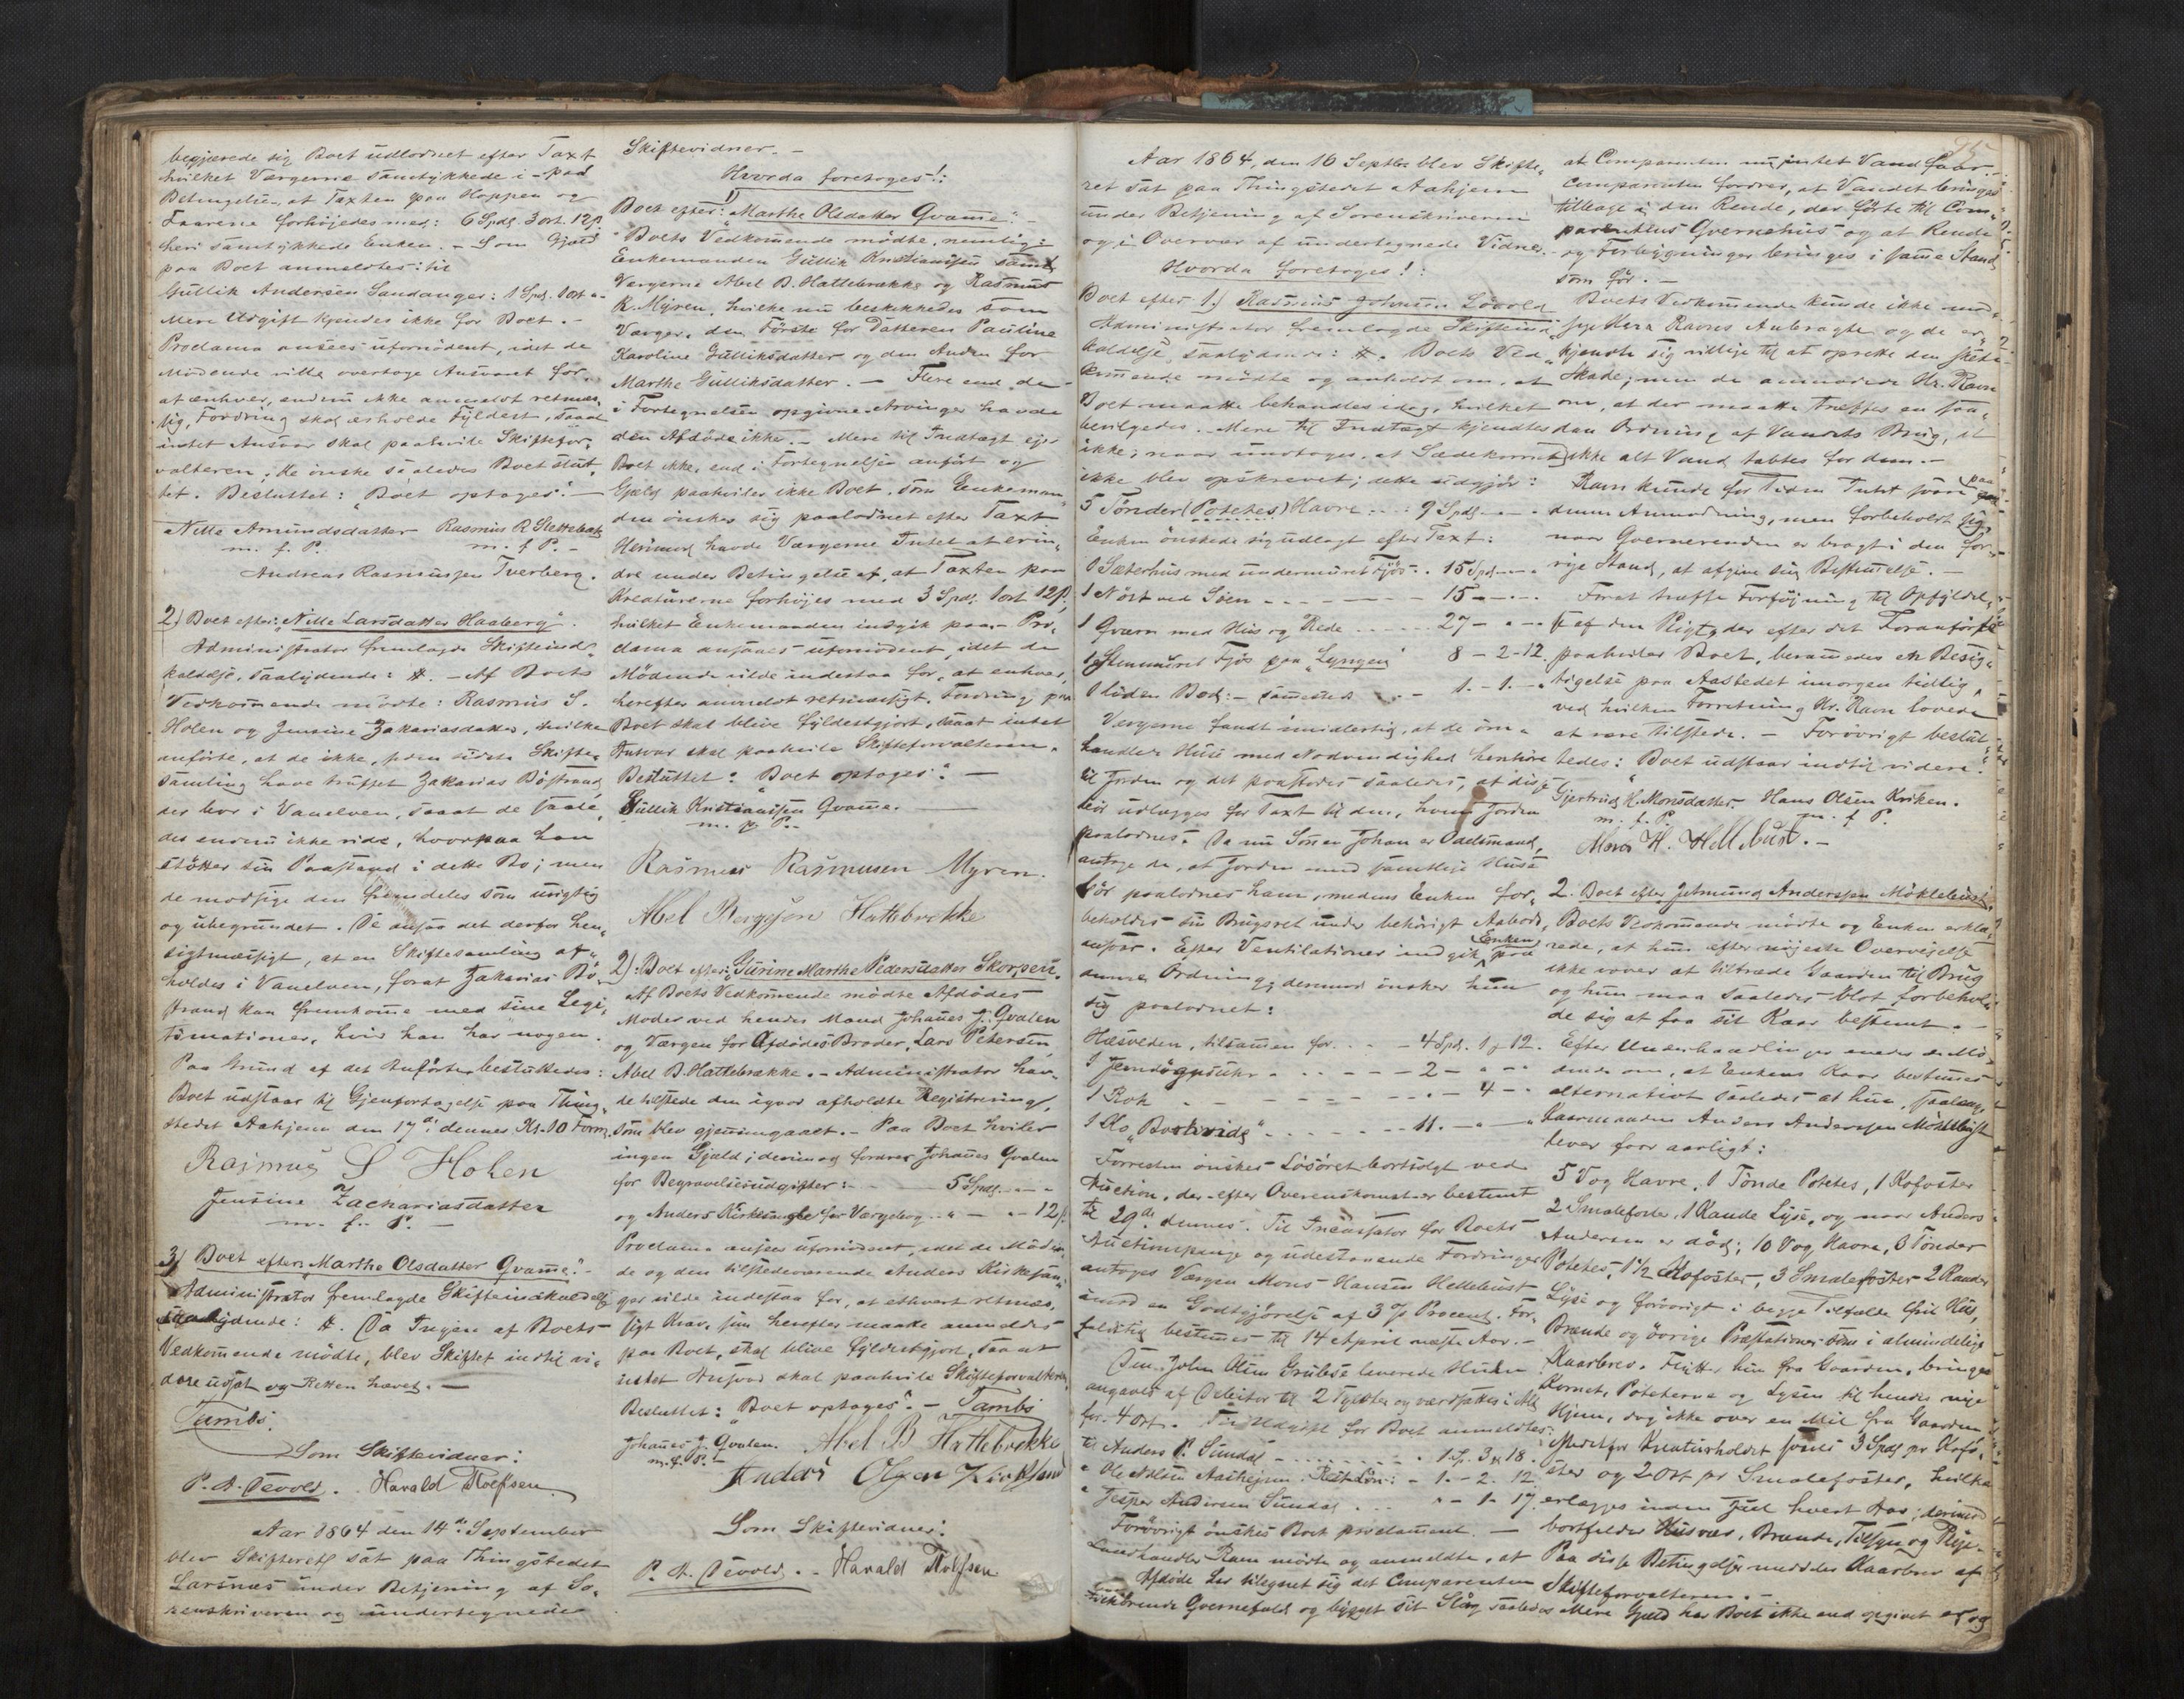 begjærede sig Boet udlodnet efter Taxt
hvilket Værgerne samtykkede i - paa
Betingelse, at Taxten paa Hoppen og
Faarene forhøjedes med: 6 Spd. 3 ort. 12 ß.
heri samtykkede Enken. - Som Gjæld
paa Boet anmeldtes: til
Gullik Andersen Sandanger: 1 Spd. 1 ort
Mere Udgift kjendes ikke for Boet. -
Proclama ansees ufornødent, idet de
Mødende ville overtage Ansvaret for,
at enhver, endnu ikke anmeldt retmæs-
sig, Fordring skal erholde Fyldest, saaat
intet Ansvar skal paahvile Skiftefor-
valteren; de ønske saaledes Boet slut-
tet. Besluttet: "Boet optages". -
Nille Amundsdatter Rasmus R. Slettebak
m. f. P. m. f. P. -
Andreas Rasmussen Tverberg.
2) Boet efter: "Nille Larsdatter Haaberg".
Administrator fremlagde Skifteind-
kaldelse, saalydende: #. - Af Boets
Vedkommende mødte: Rasmus S.
Holen og Jensine Zakariasdatter, hvilke
anførte, at de ikke, siden sidste Skifte-
samling have truffet Zakarias Bøstrand
der bor i Vanelven, saaat de saale-
des endnu ikke vide, hvorpaa han
støtter sin Paastand i dette Bo; men
de modsige den fremdeles som urigtig
og ubegrundet. De ansaa det derfor hen-
sigtmæssigt, at en Skiftesamling af-
holdes i Vanelven, forat Zakarias Bø-
strand kan fremkomme med sine Legi-
timationer, hvis han har nogen.
Paa Grund af det Anførte, besluttedes:
Boet udstaar til Gjenfortagelse paa Thing-
stedet Aahjem den 17de dennes Kl. 10 Form.
Rasmus S Holen
Jensine Zachariasdatter
m. f. P. -
3) Boet efter: Marthe Olsdatter Qvamme". -
Administrator fremlagde Skifteindkaldelse
saalydende: #. Da Ingen af Boets
Vedkommende mødte, blev Skiftet indtil vi-
dere udsat og Retten hævet. -
Tambs.
Som Skiftevidner:
P. A. Devold. Harald Rolfsen
Aar 1864 den 14de September
blev Skifteret sat paa Thingstedet
Larsnæs under Betjening af So-
renskriveren og undertegnede
Skiftevidner. -
Hvorda foretoges!:
1)
Boet efter: "Marthe Olsdatter Qvamme". -
Boets Vedkommende mødte, nemlig:
Enkemanden Gullik Kristianssen samt
Værgerne Abel B. Hattebrække og Rasmus
R. Myren, hvilke nu beskikkedes som
Værger, den Første for Datteren Pauline
Karoline Gulliksdatter og den Anden for
Marthe Gulliksdatter. - Flere end de
i Fortegnelsen opgivne Arvinger havde
den Afdøde ikke. - Mere til Indtægt ejer
Boet ikke, end i Fortegnelsen anført og
Gjæld paahviler ikke Boet, som Enkeman-
den ønsker sig paalodnet efter Taxt
Herimod havde Værgerne Intet at erin-
dre under Betingelse af, at Taxten paa
Kreaturerne forhøjes med 3 Spd. 1 ort 12 ß.
hvilket Enkemanden indgik paa. - Pro-
clama ansaaes ufornødent, idet de
Mødende vilde indestaa for, at enhver,
herefter anmeldt retmæssigt Fordring paa
Boet skal blive fyldestgjort, saaat intet
Ansvar skal paahvile Skifteforvalteren.
Besluttet: "Boet optages". -
Gullik Kristianssen Qvamme.
m. f. P. -
Rasmus Rasmusen Myren.
Abel Bergesøn Hattebrekke
2): Boet efter: "Gurine Marthe Pedersdatter Skorpen".
Af Boets Vedkommende mødte Afdødes
Moder ved hendes Mand Johannes J. Qvalen
og Værgen for Afdødes Broder, Lars Petersen,
Abel B. Hattebrække. - Administrator hav-
de tilstede den igaar afholdte Registrering,
som blev gjennemgaaet. - Paa Boet hviler
ingen Gjæld; derimod fordrer Johannes Qvalen
for Begravelsesudgifter: - - 5 Spd. - -
og Anders Kirksangle for Værgebog - " - - 12 ß.
Proclama ansees ufornødent, idet de Møden-
de og den tilstedeværende Anders Kirksan-
ger vilde indestaa for, at ethvert retmæs-
sigt Krav, som herefter maatte anmeldes
paa Boet, skal blive fyldestgjort, saaat
intet Ansvar skal paahvile Skifteforvalteren.
Besluttet: "Boet optages". - Tambs
Johannes J. Qvalen. Abel B Hattebrekke
m. f. P. -
Anders Olsen
Som Skiftevidner:
P. A. Devold. - Harald Rolfsen
Aar 1864, den 16 Septbr blev Skifte-
ret sat paa Thingstedet Aahjem
under Betjening af Sorenskriveren
og i Overvær af undertegnede Vidner.
Hvorda foretoges!:
Boet efter 1.) Rasmus Johnsen Løvold
Administrator fremlagde Skifteind-
kaldelse, saalydende: #. Boets Ved-
kommende mødte og anholdt om, at
Boet maatte behandles idag, hvilket
bevilgedes. - Mere til Indtægt kjendtes
ikke; naar undtages, at Sædekornet
ikke blev opskrevet; dette udgjør:
5 Tønder (Potetes) Havre - - : 9 Spd. - -
Enken ønskede sig udlagt efter Taxt:
1 Sæterhus med undermuret Fjøs - 15 Spd - -
1 Nøst ved Søen - - - - 15 - - -
1 Qværn med Hus og Rede - - 27 - " - "
1 Stenmuret Fjøs paa "Lyngen" 8 - 2 - 12.
1 liden Bod: - sammesteds - - 1. - 1. -
Værgerne fandt imidlertid, at de om-
handlede Huse med Nødvendighed henhøre
til Jorden og det paastodes saaledes, at disse
bør udlægges for Taxt til den, hvem Jorden
paalodnes. Da nu Sønnen Johan er Odelsmand,
antoge de, at Jorden med samtlige Huse
bør paalodnes ham, medens Enken for-
beholdes sin Brugsret under behørigt Aabods-
ansvar. Efter Ventilationer indgik Enken paa
denne Ordning; derimod ønsker hun
sig paalodnet:
Hæsveden, tilsammen for - - - 4 Spd. 1 - 12.
1 Jerndøgnsuhr - - - - 2 - " - "
1 Rok - - - - " - 4 - "
1 Ko "Bortvide" - - - - 11. - " - "
Forresten ønskes Løsøret bortsolgt ved
Auction, der - efter Overenskomst er bestemt
til 29de dennes. Til Incassator for Boets
Auctionspenge og udestaaende Fordringer
antoges Værgen Mons Hansen Hellebust
imod en Godtgjørelse af 3 % Procent. For-
faldstid bestemmes til 14 April næste Aar. -
John Olsen leverede Huden
angaves af Debitor til 2 og værdsættes i Alt
for 4 Ort. Til Udgift for Boet anmeldtes:
til Anders P. Sundal - - - - 1 Sp. 3 - 18.
" Ole Nilsen Aahjem. Rest Løn: - 1. - 2. 12
" Jesper Andersen Sundal - - - " - 1 - 17.
Forøvrigt ønskes Boet proclameret. -
Landhandler Ravn mødte og anmeldte, at
Afdøde har tilegnet sig det Comparenten
tilhørende Qvernefald og bygget sit saaledes
at Comparenten nu intet Vand faar. -
Comparenten fordrer, at Vandet bringes
tilbage i den Rende, der førte til Com-
parentens Qvernehus og at Rende
og Forbygninger bringes i samme Stand
som før. -
Boets Vedkommende kunde ikke mod-
sige Hera Ravns Anbragte og de er-
kjendte sig villige til at oprette den skete
Skade; men de anmodede Hr. Ravn
om, at der maatte træffes en saa-
dan Ordning af Vandets Brug, at
ikke alt Vand tabtes for dem. -
Ravn kunde for Tiden Intet svare paa
denne Anmodning, men forbeholdt sig,
naar Qvernerenden er bragt i den for-
rige Stand, at afgive sin Bestemmelse. -
Forat træffe Forføjning til Opfyldel-
se af den Pligt, der efter det Foranførte
paahviler Boet, berammedes en Besig-
tigelse paa Aastedet imorgen tidlig,
ved hvilken Forretning Hr. Ravn lovede
at være tilstede. - Forøvrigt beslut-
tedes: "Boet udstaar indtil videre".
Gjertrud H. Monsdatter. Hans Olsen Kriken.
m. f. P. m. f. P.
Mons H. Hellebust. -
2. Boet efter Jetmund Anderssen Møklebust.
Boets Vedkommende mødte og Enken erklæ-
rede, at hun efter nøjeste Overvejelse
ikke vover at tiltræde Gaarden til Brug
og hun maa saaledes blot forbehol-
de sig at faa sit Kaar bestemt. -
Efter Underhandlinger enedes de Mø-
dende om, at Enkens Kaar bestemmes
alternativt saaledes at hun, saalænge
Kaarmanden Anders Anderssen Møklebust
lever faar aarligt:
5 Vog Havre, 1 Tønde Potetes, 1 Kofoster
2 Smalefoder, 1 Kande Lyse, og naar Anders
Andersen er død; 10 Vog Havre, 3 Tønder
Potetes, 1½ Kofoster, 3 Smalefoster 2 Kander
Lyse og forøvrigt i begge Tilfælde frit Hus,
Brænde og øvrige Præstationer som i almindelige
Kaarbrev. Flytter hun fra Gaarden, bringes
Kornet, Poteterne og Lysen til hendes nye
Hjem, dog ikke over en Mil fra Gaarden
Istedetfor Kreaturholdet svares 3 Spd pr Kofo-
ster og 2 Ort pr Smalefoster, hvilke
erlægges inden Jul hvert Aar; derimod
bortfalder Husvær, Brænde, Tilsyn og Pleje.
Paa disse Betingelser meddeles Kaarbrev af
Skifteforvalteren. -
Mere Gjæld har Boet ikke end opgivet er og